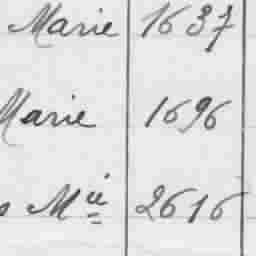 Marie 1637
Marie 1696
s Mie 2616